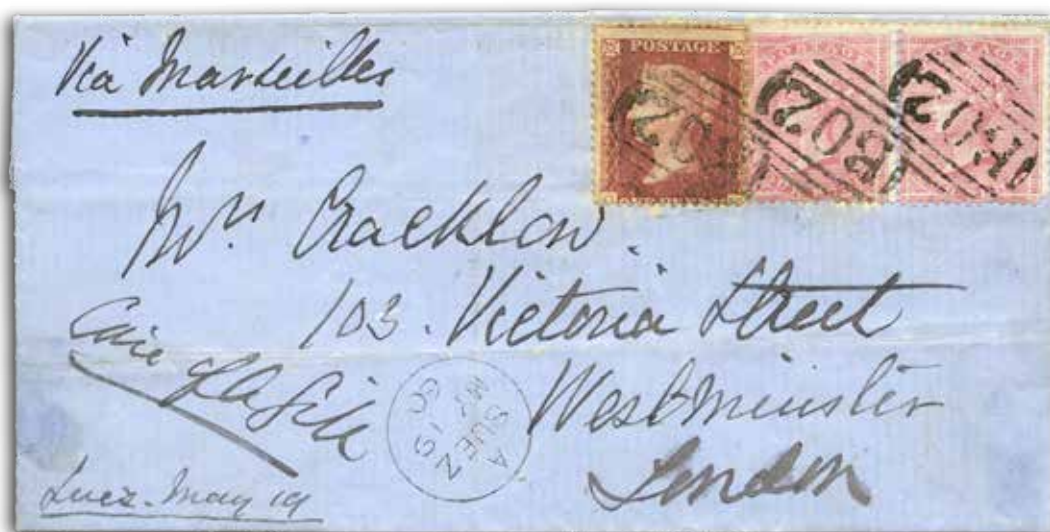 Via Marseilles
POSTAGE
B02
B02
Cracklow.
103. Victoria Street
Westminster
London
A
SUEZ
MY 19
60
Suez. May 19